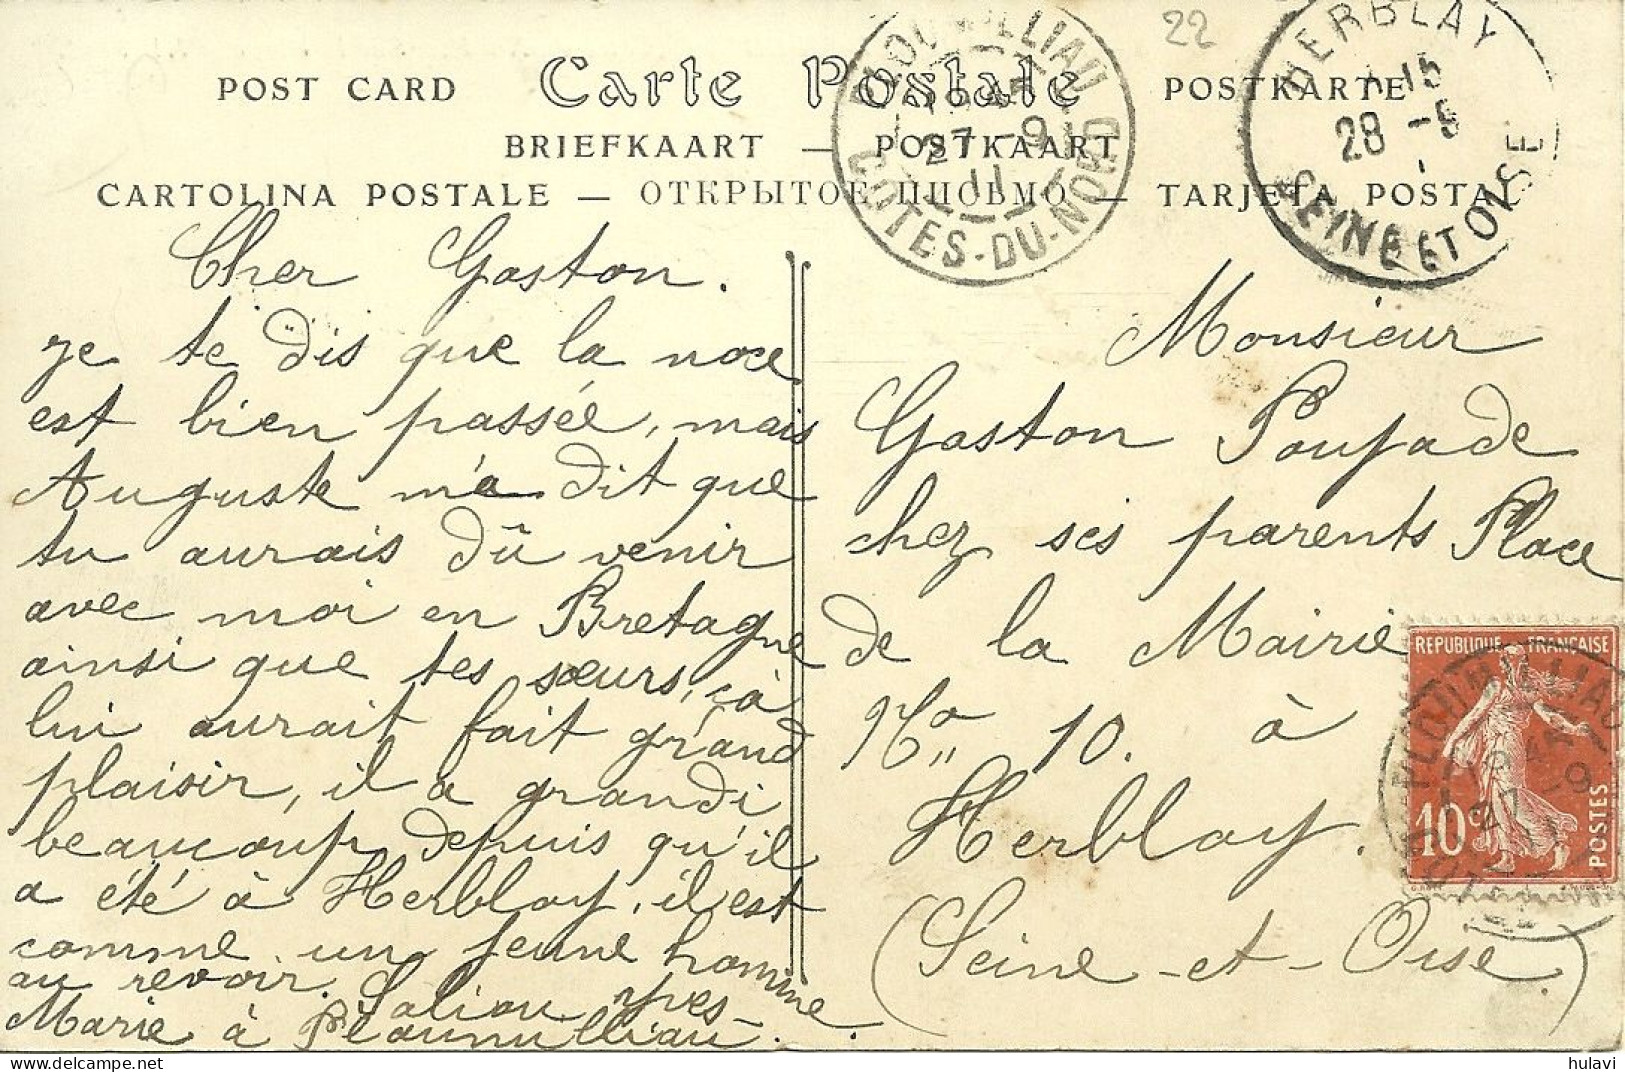 22
POST CARD Carte Postale POSTKARTE
BRIEFKAART — POSTKAART
CARTOLINA POSTALE — ОТКРЫТОЕ ПИСЬМО — TARJETA POSTAL
PLOUMILLIAU
27 -9
11
COTES-DU-NORD
HERBLAY
28 -9
SEINE ET OISE
Cher Gaston.
je te dis que la noce
est bien passée, mais
Auguste m'a dit que
tu aurais dû venir
avec moi en Bretagne
ainsi que tes sœurs, çà
lui aurait fait grand
plaisir, il a grandi
beaucoup depuis qu'il
a été à Herblay, il est
comme un jeune homme
au revoir. Saliou Yves
Marie à Ploumilliau.
Monsieur
Gaston Poujade
chez ses parents Place
de la Mairie
No 10. à
Herblay.
(Seine-et-Oise.)
REPUBLIQUE FRANÇAISE
10c
POSTES
PLOUMILLIAU
27 -9
11
hulavi